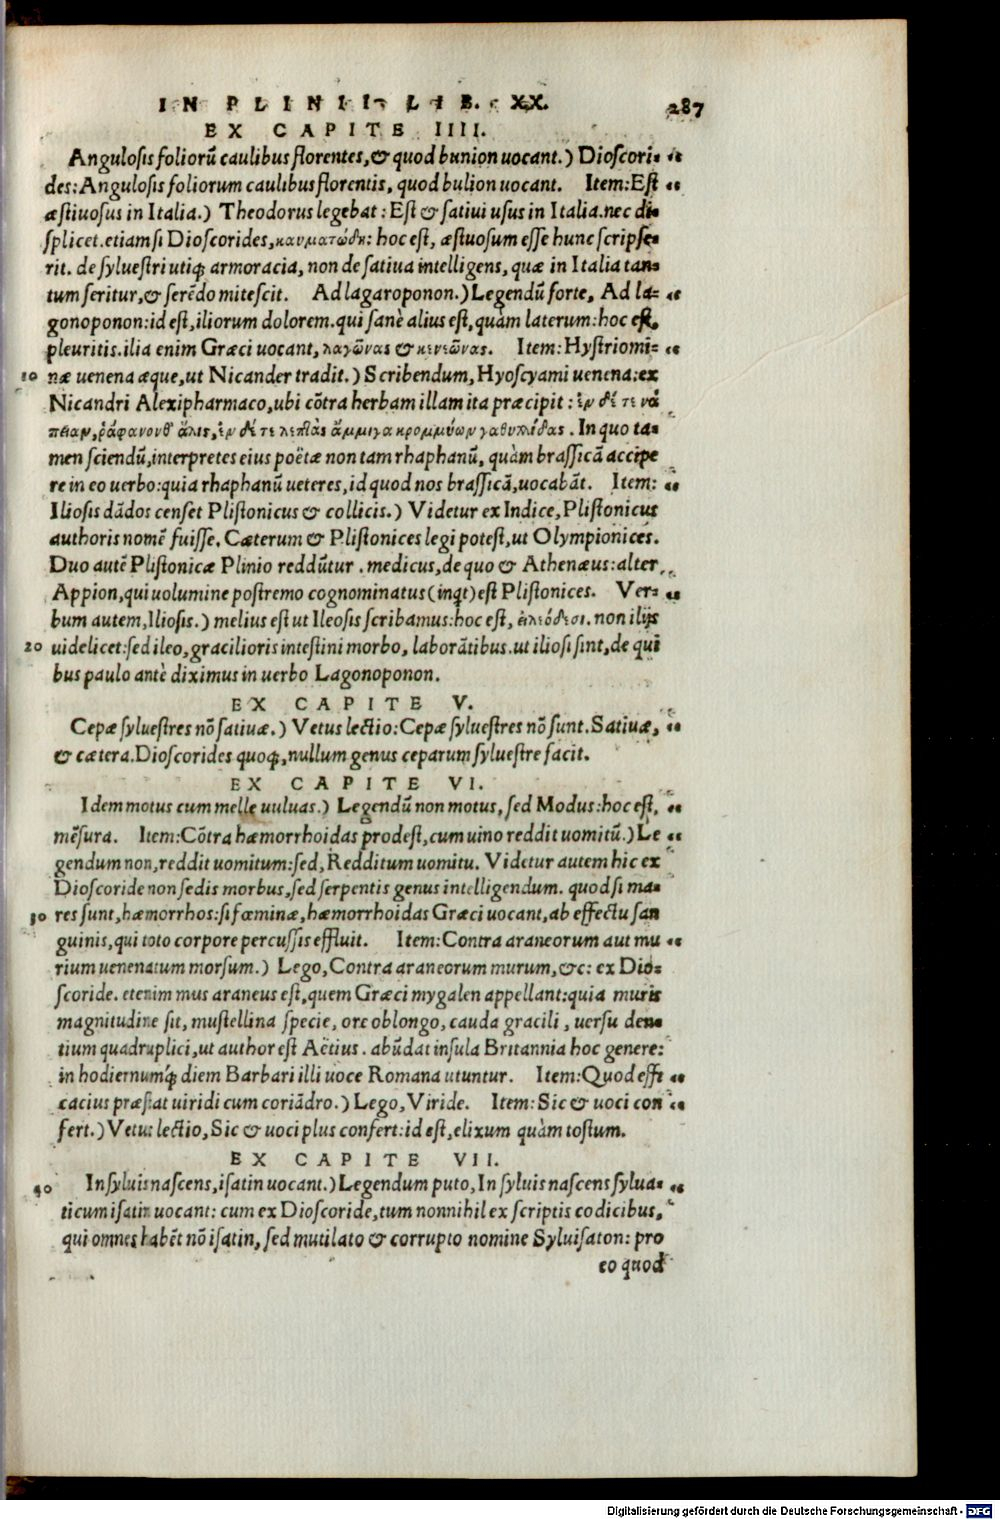 IN PLINII LIB. XX. 287
EX CAPITE IIII.
Angulosis foliorũ caulibus florentes, & quod bunion uocant.) Dioscori-
des: Angulosis foliorum caulibus florentis, quod bulion uocant. Item: Est
æstiuosus in Italia.) Theodorus legebat: Est & satiui usus in Italia. nec di-
splicet. etiamsi Dioscorides, καυματώδη: hoc est, æstuosum esse hunc scripse-
rit. de syluestri utiq; armoracia, non de satiua intelligens, quæ in Italia tan-
tum seritur, & serẽdo mitescit. Ad lagaroponon.) Legendũ forte, Ad la-
gonoponon: id est, iliorum dolorem. qui sanè alius est, quàm laterum: hoc est,
pleuritis. ilia enim Græci uocant, λαγῶνας & κενεῶνας. Item: Hystriomi-
10 næ uenena æque, ut Nicander tradit.) Scribendum, Hyoscyami uenena: ex
Nicandri Alexipharmaco, ubi cõtra herbam illam ita præcipit: ἐν δέ τε νά
πειαν, ῥάφανονθ᾽ ἅλις, ἐν δέ τε λεπτὰς ἄμμιγα κρομμύων γαθυλλίδας. In quo ta-
men sciendũ, interpretes eius poëtæ non tam rhaphanũ, quàm brassicã accipe
re in eo uerbo: quia rhaphanũ ueteres, id quod nos brassicã, uocabãt. Item:
Iliosis dãdos censet Plistonicus & collicis.) Videtur ex Indice, Plistonicus
authoris nomẽ fuisse. Cæterum & Plistonices legi potest, ut Olympionices.
Duo autẽ Plistonicæ Plinio reddũtur. medicus, de quo & Athenæus: alter
Appion, qui uolumine postremo cognominatus (inqt) est Plistonices. Ver-
bum autem, Iliosis.) melius est ut Ileosis scribamus: hoc est, εἰλεώδεσι. non ilijs
20 uidelicet: sed ileo, gracilioris intestini morbo, laborãtibus. ut iliosi sint, de qui
bus paulo antè diximus in uerbo Lagonoponon.
EX CAPITE V.
Cepæ syluestres nõ satiuæ.) Vetus lectio: Cepæ syluestres nõ sunt. Satiuæ,
& cætera. Dioscorides quoq;, nullum genus ceparum syluestre facit.
EX CAPITE VI.
Idem motus cum melle uuluas.) Legendũ non motus, sed Modus: hoc est,
mẽsura. Item: Cõtra hæmorrhoidas prodest, cum uino reddit uomitũ.) Le
gendum non, reddit uomitum: sed, Redditum uomitu. Videtur autem hic ex
Dioscoride non sedis morbus, sed serpentis genus intelligendum. quod si ma-
30 res sunt, hæmorrhos: si fœminæ, hæmorrhoidas Græci uocant, ab effectu san
guinis, qui toto corpore percussis effluit. Item: Contra araneorum aut mu
rium uenenatum morsum.) Lego, Contra araneorum murum, &c: ex Dio-
scoride. etenim mus araneus est, quem Græci mygalen appellant: quia muris
magnitudine sit, mustellina specie, ore oblongo, cauda gracili, uersu den-
tium quadruplici, ut author est Aëtius. abũdat insula Britannia hoc genere:
in hodiernumq́; diem Barbari illi uoce Romana utuntur. Item: Quod effi
cacius præstat uiridi cum coriãdro.) Lego, Viride. Item: Sic & uoci con
fert.) Vetus lectio, Sic & uoci plus confert: id est, elixum quàm tostum.
EX CAPITE VII.
40 In syluis nascens, isatin uocant.) Legendum puto, In syluis nascens sylua-
ticum isatin uocant: cum ex Dioscoride, tum nonnihil ex scriptis codicibus,
qui omnes habẽt nõ isatin, sed mutilato & corrupto nomine Syluisaton: pro
eo quod
Digitalisierung gefördert durch die Deutsche Forschungsgemeinschaft - DFG